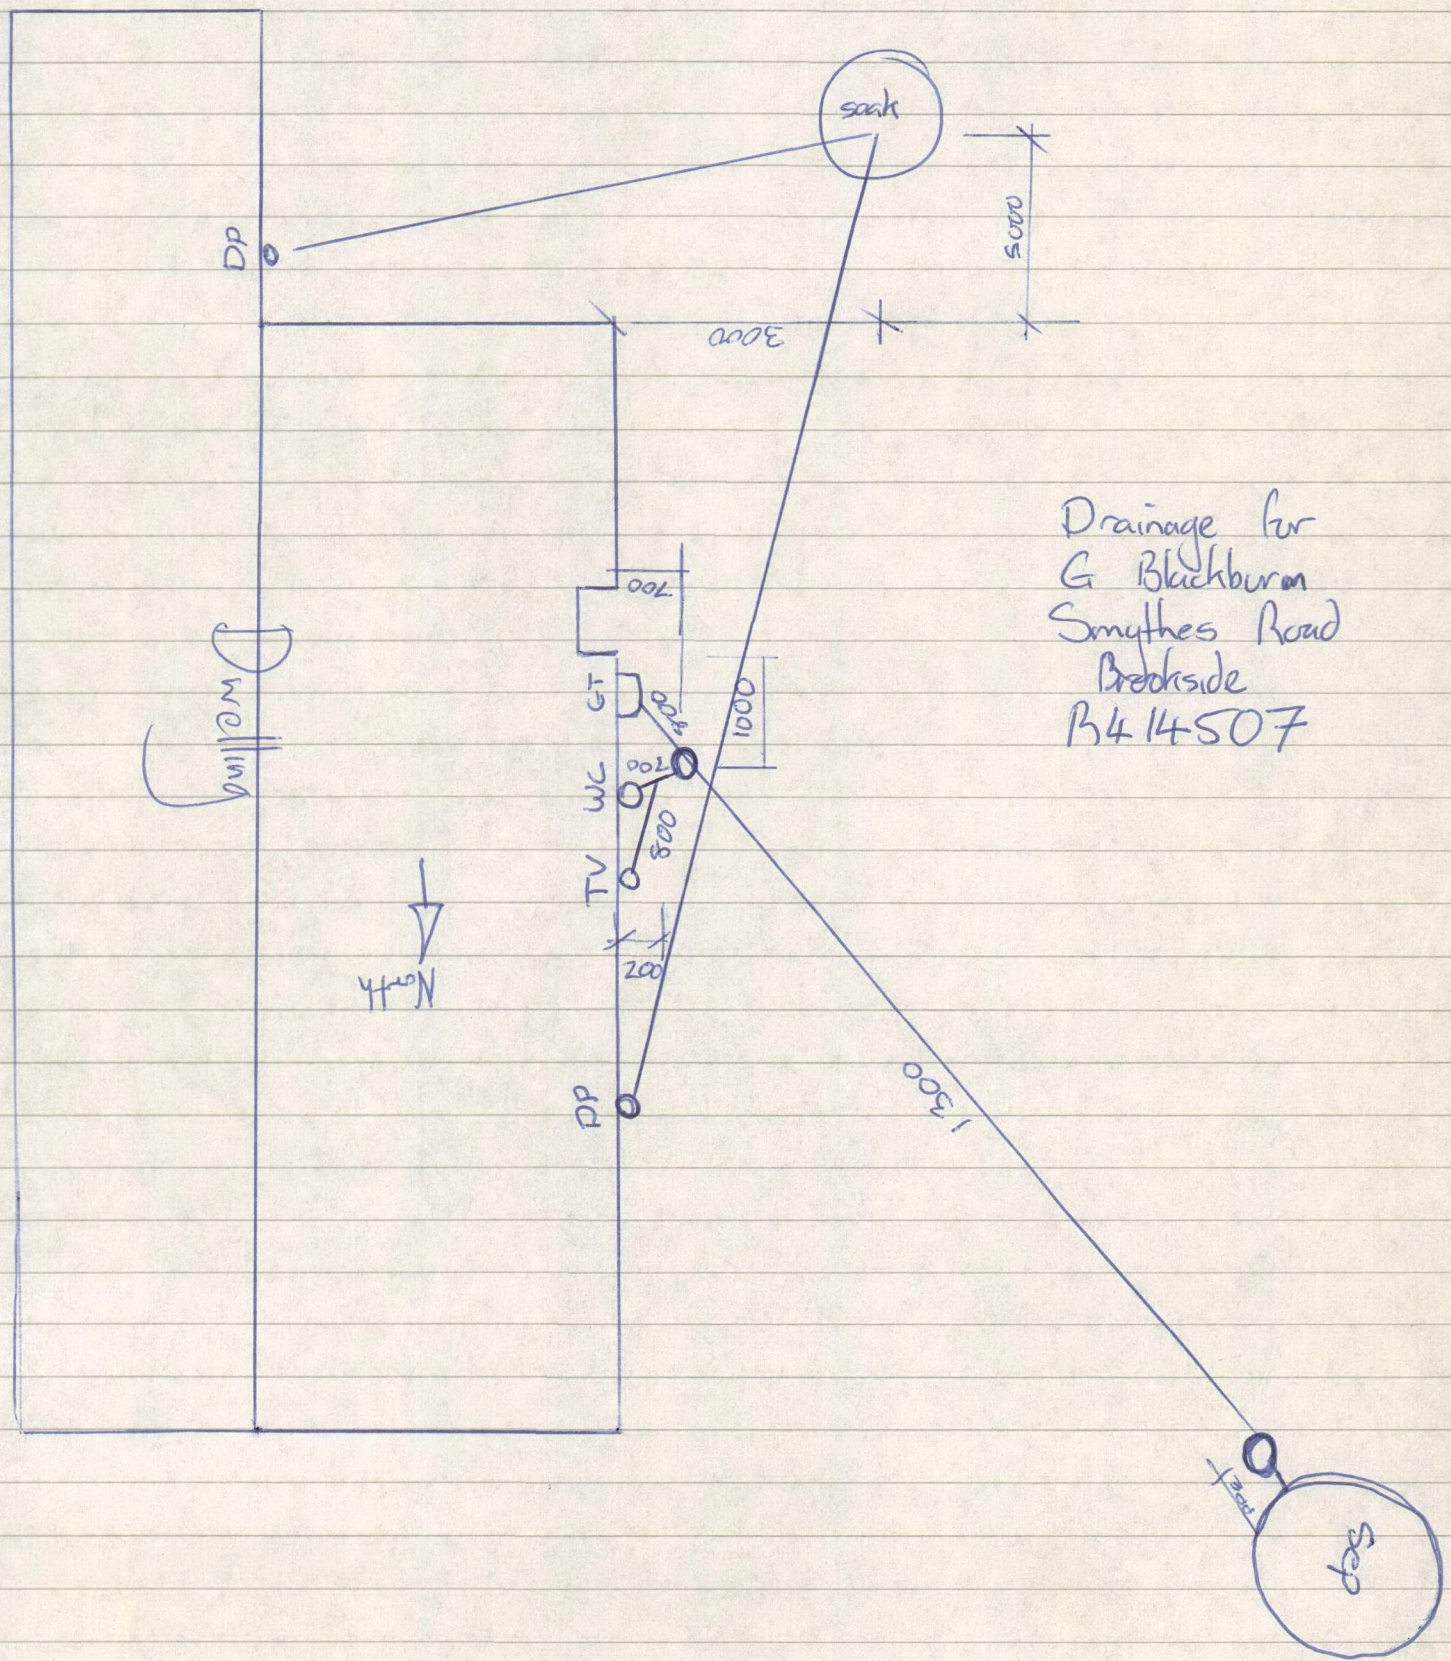 soak
5000
DP
3000
Drainage for
G Blackburn
Smythes Road
Brookside
B414507
700
Dwelling
GT
900
1000
WC
700
800
TV
North
200
DP
1300
Sep